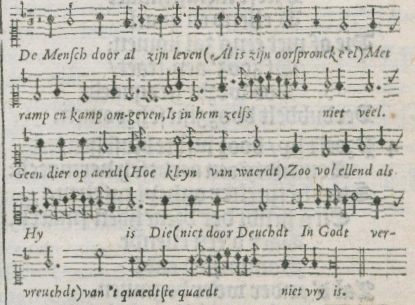 De Mensch door al zijn leven (Al is zijn oorspronck eêl) Met
ramp en kamp om-geven, Is in hem zelfs niet veêl.
Geen dier op aerdt (Hoe kleyn van waerdt) Zoo vol ellend als
Hy is Die (niet door Deuchdt In Godt ver-
vreuchdt) van 't quaedtste quaedt niet vry is.